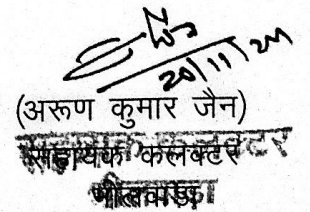 20/11/24
(अरूण कुमार जैन)
सहायक कलक्टर
भीलवाड़ा